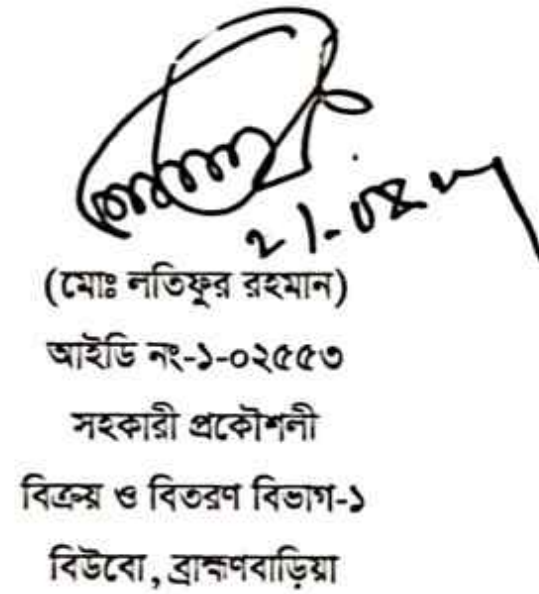 (মোঃ লতিফুর রহমান)
আইডি নং-১-০২৫৫৩
সহকারী প্রকৌশলী
বিক্রয় ও বিতরণ বিভাগ-১
বিউবো, ব্রাহ্মণবাড়িয়া